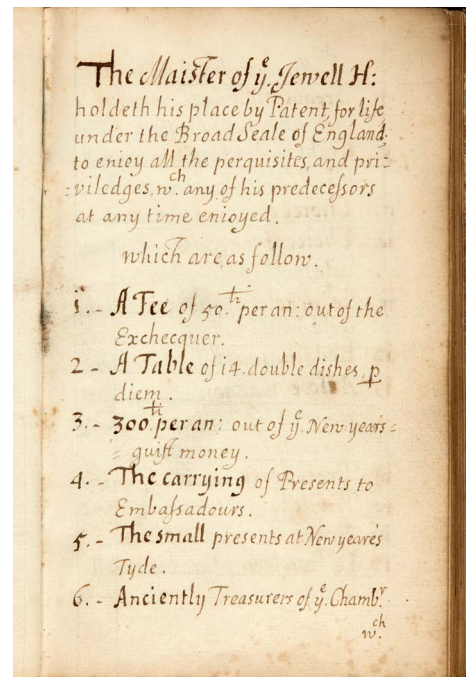 The Maister of yᵉ. Jewell H:
holdeth his place by Patent, for life
under the Broad Seale of England,
to enioy all the perquisites, and pri=
=viledges, w.ᶜʰ any of his predecessors
at any time enioyed.
which are, as follow.
1. - A Fee of 50.ˡⁱ per an: out of the
Exchecquer.
2 - A Table of 14. double dishes, p
diem.
3. - 300.ˡⁱ per an: out of yᵉ. New-years=
= guift money.
4. - The carrying of Presents to
Embassadours.
5. - The small presents at New yeare's
Tyde.
6. - Anciently Treasurers of yᵉ. Chambʳ.
w.ᶜʰ